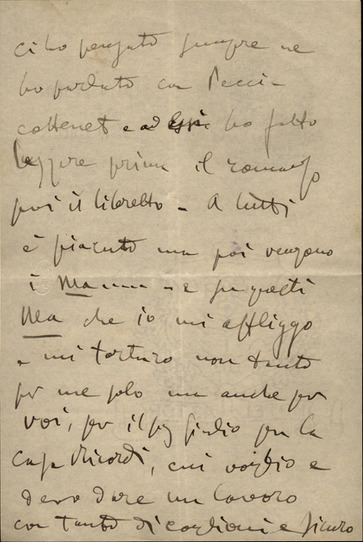 ci ho pensato sempre ne
ho parlato con Pecci-
cottenet e ad essi ho fatto
leggere prima il romanzo
poi il libretto - A tutti
è piaciuto ma poi vengono
i Ma - e per questi
Ma che io mi affliggo
e mi torturo non tanto
per me solo ma anche per
voi, per il sig Giulio per la
casa Ricordi, cui voglio e
devo dare un lavoro
con tanto di coglioni e sicuro